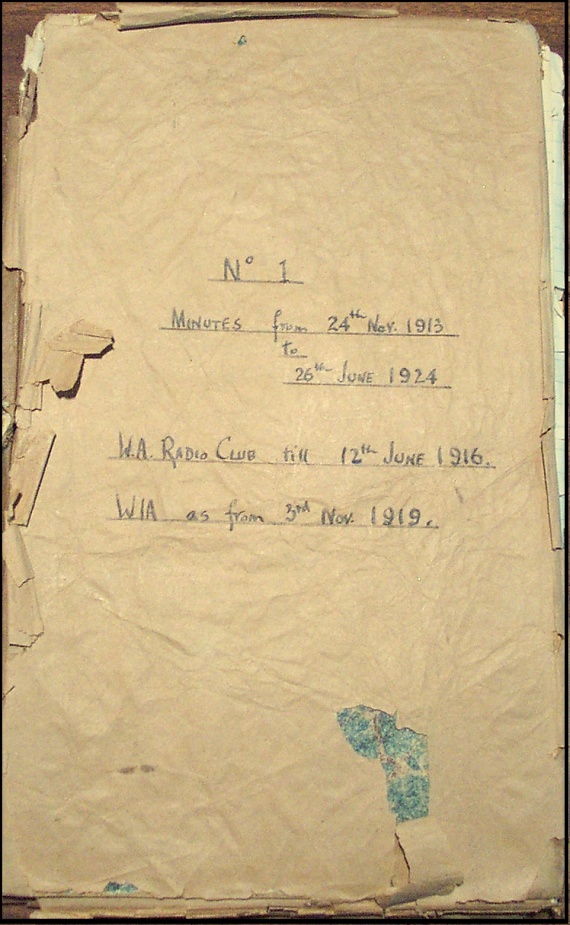 Nº 1
MINUTES from 24th Nov. 1913
to
26th JUNE 1924
W.A. RADIO CLUB till 12th JUNE 1916.
WIA as from 3rd Nov. 1919.